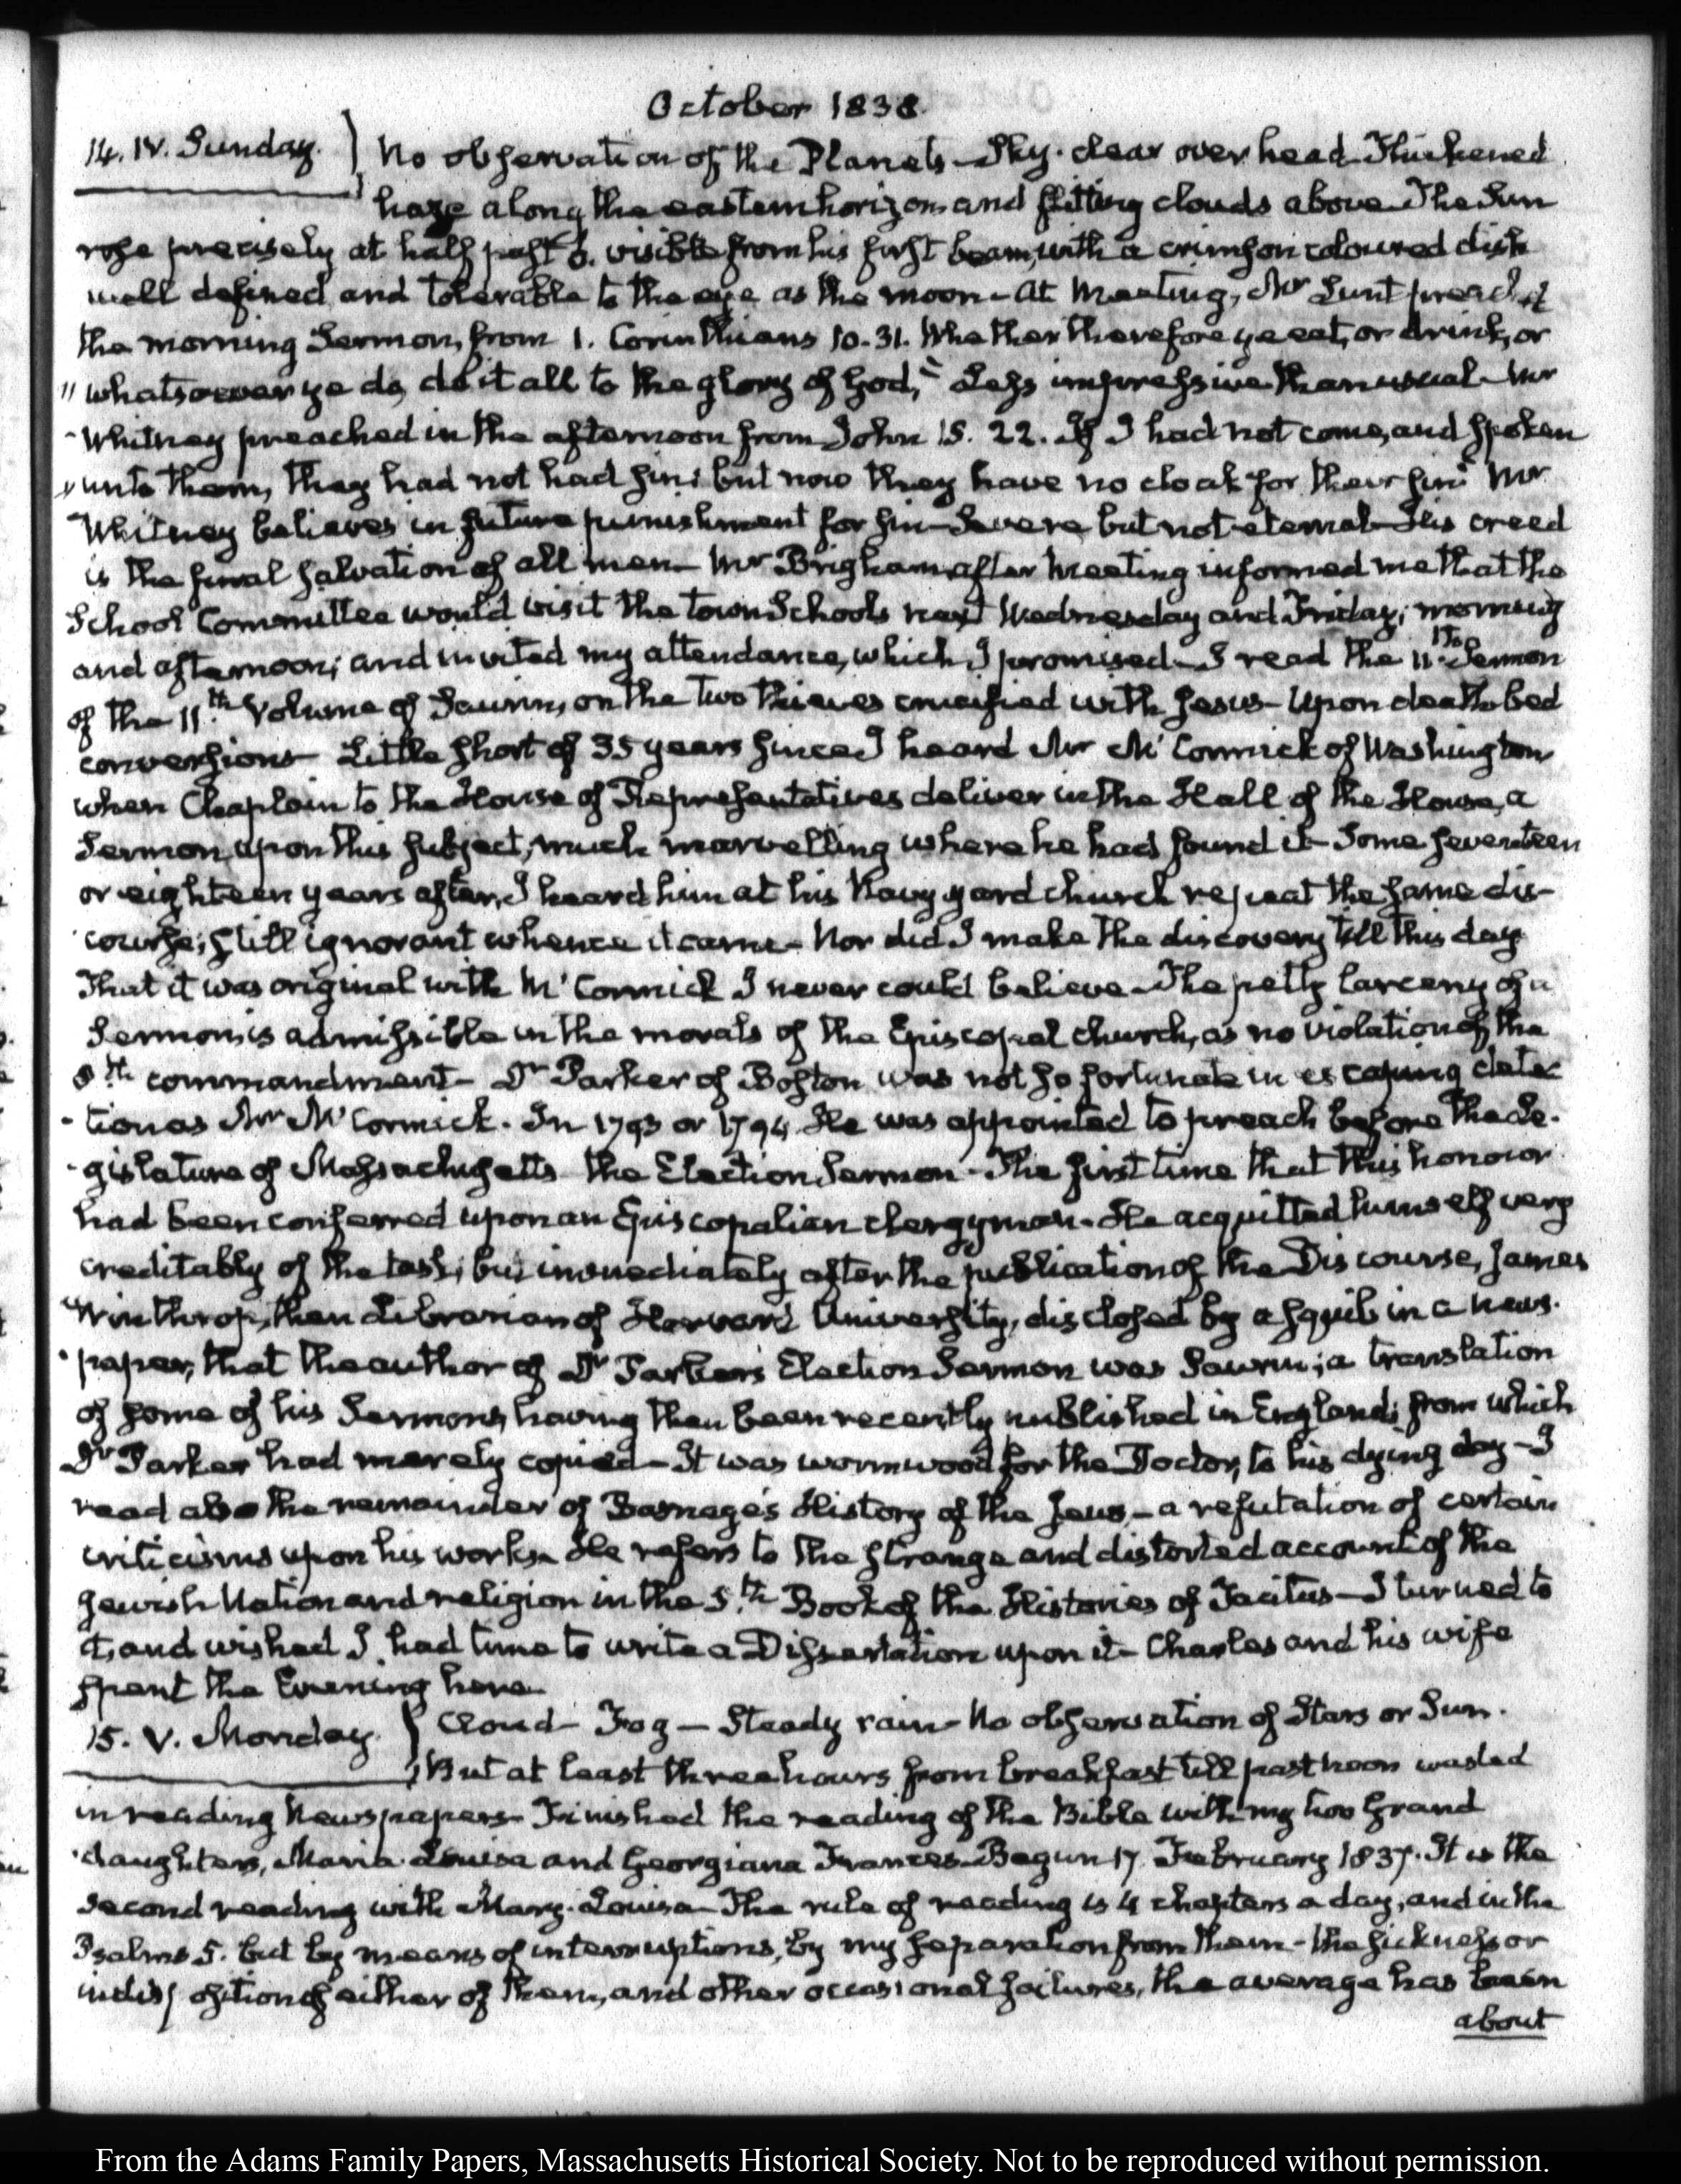 October 1838.
14. IV. Sunday. } No observation of the Planets - Sky clear over head Thickened
haze along the eastern horizon and flitting clouds above The Sun
rose precisely at half past 6. visible from his first beam, with a crimson coloured disk
well defined and tolerable to the eye as the moon - At Meeting, Mr Lunt preach'd
the morning Sermon, from 1. Corinthians 10. 31. Whether therefore ye eat, or drink, or
"whatsoever ye do, do it all to the glory of God," Less impressive than usual - Mr
Whitney preached in the afternoon from John 15. 22. If I had not come, and spoken
"unto them, they had not had sin; but now they have no cloak for their sin" Mr
Whitney believes in future punishment for sin - Severe but not eternal - His creed
is the final salvation of all men - Mr Brigham after Meeting informed me that the
School Committee would visit the town Schools next Wednesday and Friday, morning
and afternoon; and invited my attendance, which I promised - I read the 11th Sermon
of the 11th Volume of Saurin, on the two thieves crucified with Jesus - Upon death bed
conversions - Little short of 35 years since I heard Mr McCormick of Washington
when Chaplain to the House of Representatives deliver in the Hall of the House, a
Sermon upon this subject, much marvelling where he had found it - Some seventeen
or eighteen years after, I heard him at his Navy yard church repeat the same dis-
course; still ignorant whence it came - Nor did I make the discovery till this day
That it was original with McCormick I never could believe - The petty larceny of a
Sermon is admissible in the morals of the Episcopal church, as no violation of the
8th commandment - Dr Parker of Boston was not so fortunate in escaping detec
-tion as Mr McCormick. In 1793 or 1794 He was appointed to preach before the Le-
-gislature of Massachusetts the Election Sermon - The first time that this honour
had been conferred upon an Episcopalian clergyman. He acquitted himself very
creditably of the task; but immediately after the publication of the Discourse, James
Winthrop, then Librarian of Harvard University, disclosed by a squib in a news-
-paper, that the author of Dr Parker's Election Sermon was Saurin; a translation
of some of his Sermons, having then been recently published in England; from which
Dr Parker had merely copied - It was wormwood for the Doctor, to his dying day - I
read also the remainder of Basnage's History of the Jews, - a refutation of certain
criticisms upon his works - He refers to the strange and distorted account of the
Jewish Nation and religion in the 5th Book of the Histories of Tacitus - I turned to
it, and wished I had time to write a Dissertation upon it - Charles and his wife
spent the Evening here
15. V. Monday. } Cloud - Fog - Steady rain - No observation of Stars or Sun.
But at least three hours from breakfast till past noon wasted
in reading Newspapers - Finished the reading of the Bible with my two Grand
daughters, Maria Louisa and Georgiana Frances - Begun 17. February 1837. It is the
second reading with Mary-Louisa - The rule of reading is 4 chapters a day, and in the
Psalms 5. but by means of interruptions, by my separation from them - the sickness or
indisposition of either of them, and other occasional failures, the average has been
about
From the Adams Family Papers, Massachusetts Historical Society. Not to be reproduced without permission.